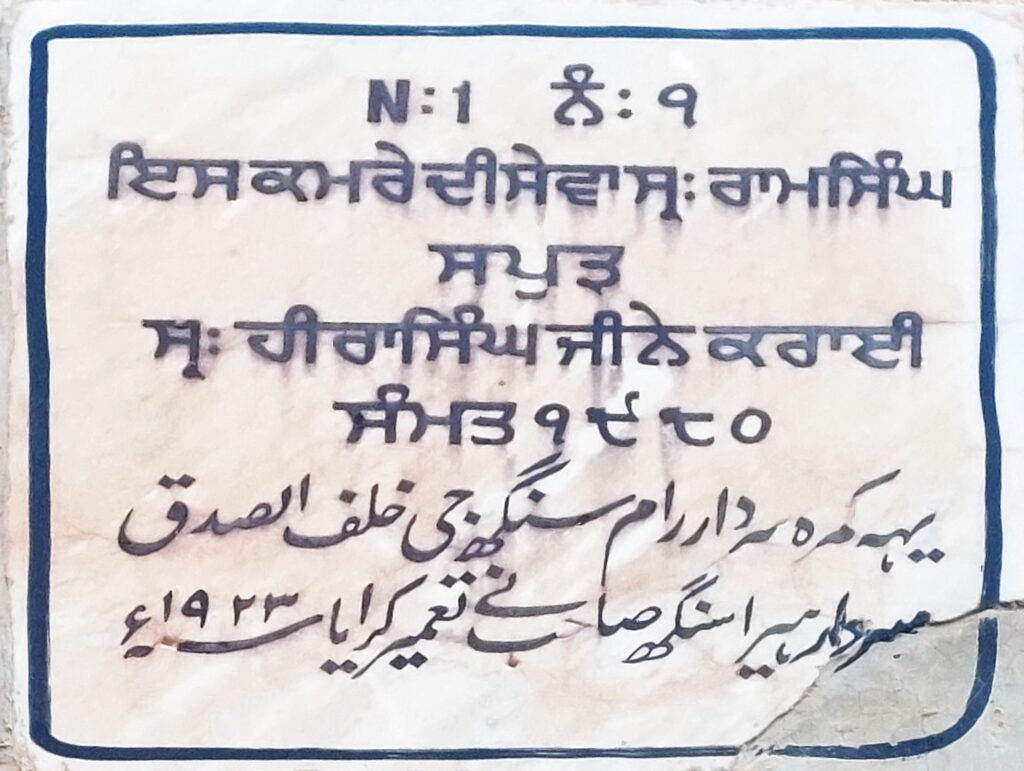 N:1 ਨੰ: ੧
ਇਸ ਕਮਰੇ ਦੀ ਸੇਵਾ ਸ੍ਰ: ਰਾਮ ਸਿੰਘ
ਸਪੁਤ੍ਰ
ਸ੍ਰ: ਹੀਰਾ ਸਿੰਘ ਜੀ ਨੇ ਕਰਾਈ
ਸੰਮਤ ੧੯੮੦
یہہ کمرہ سردار رام سنگھ جی خلف الصدق
سردار ہیرا سنگھ صاحب نے تعمیر کرایا سنہ ۱۹۲۳ء